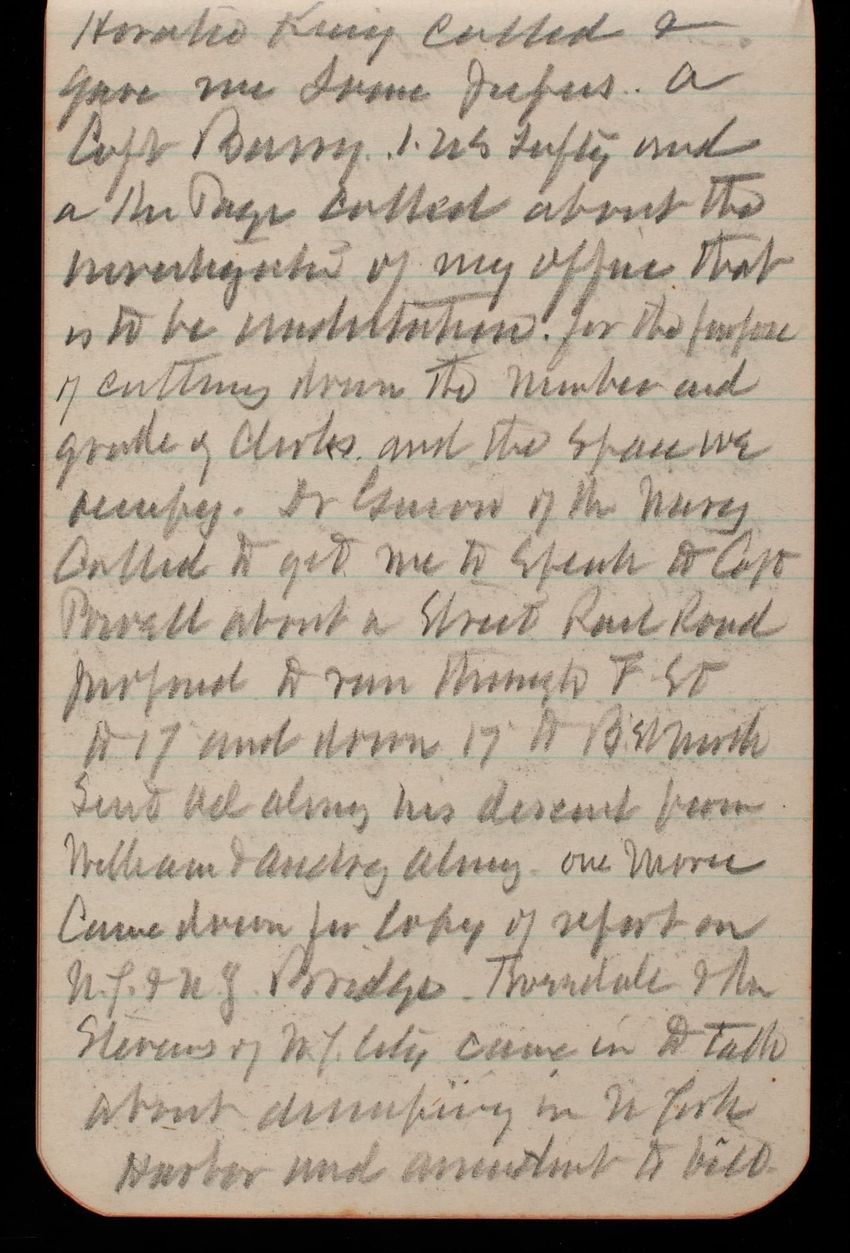 Horatio King called &
gave me some papers. A
Capt Barry. and
a Mr Page called about the
investigation of my office that
is to be for the purpose
of cutting down the number and
grade of Clerks. and the space we
occupy. Dr of the Navy
Called to get me to speak to Capt
Powell about a Street Rail Road
proposed to run through F St
to 17 and down 17 to B St North
Sent along his descent from
William & along. one
Came down for Copy of report on
N.Y. & N J. Bridge. & Mr
Stevens of N.Y. City came in to talk
about dumping in N York
Harbor and amendment to bill